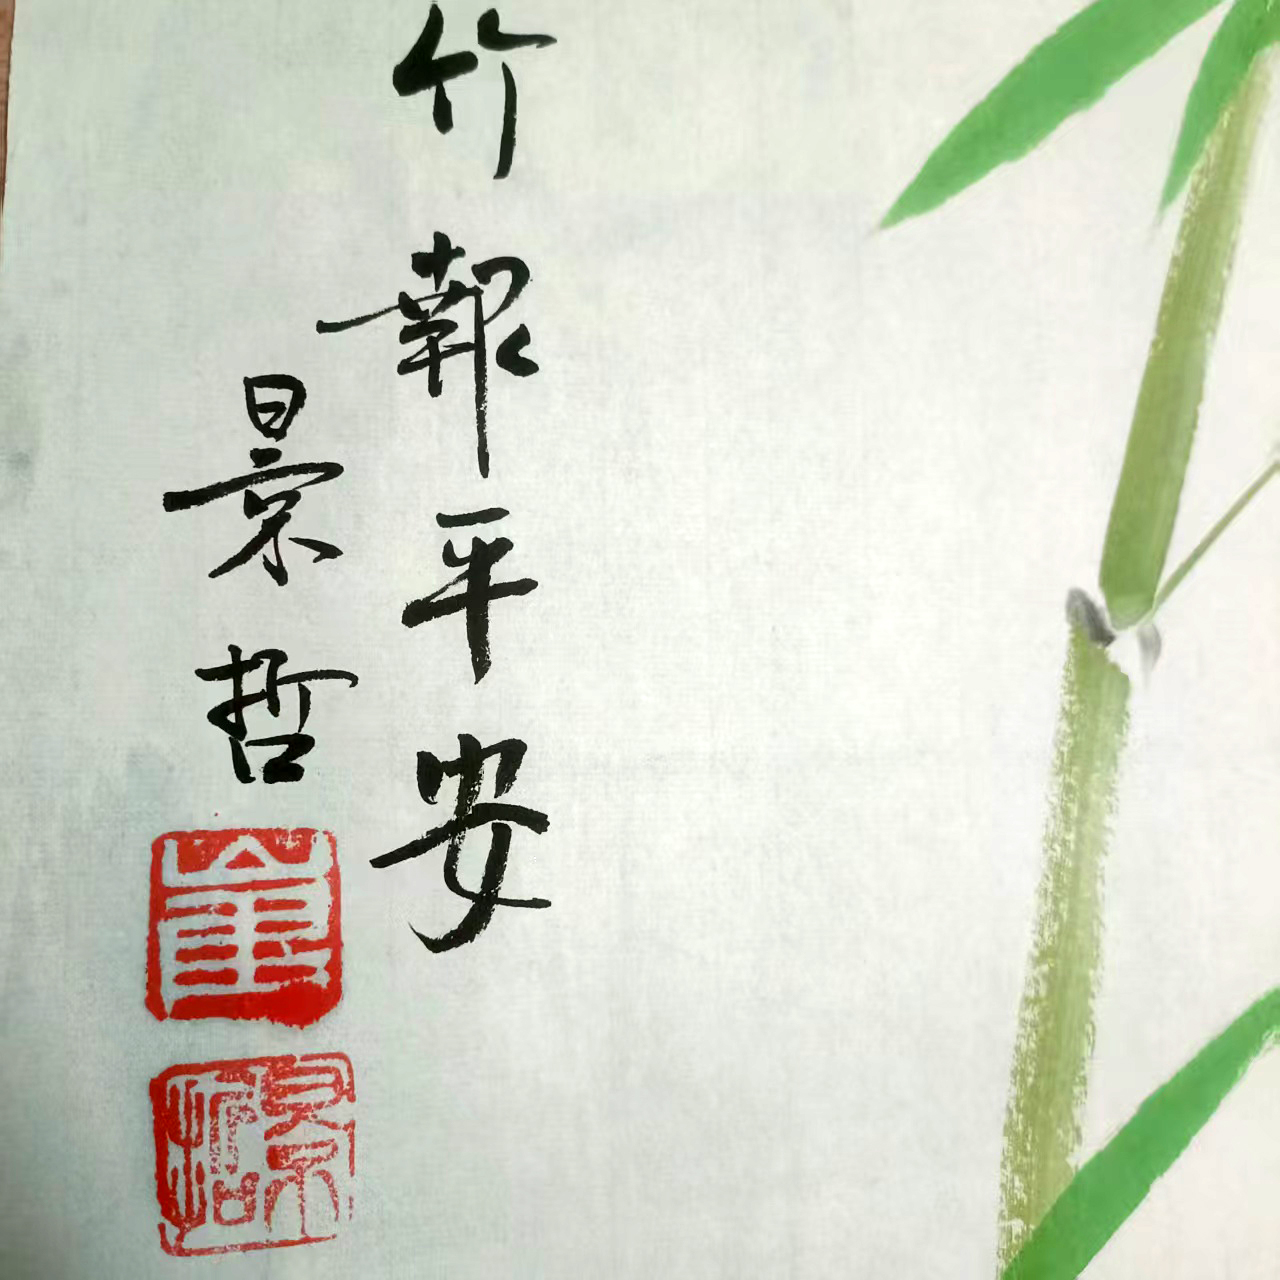 竹報平安
景哲
崔
景哲